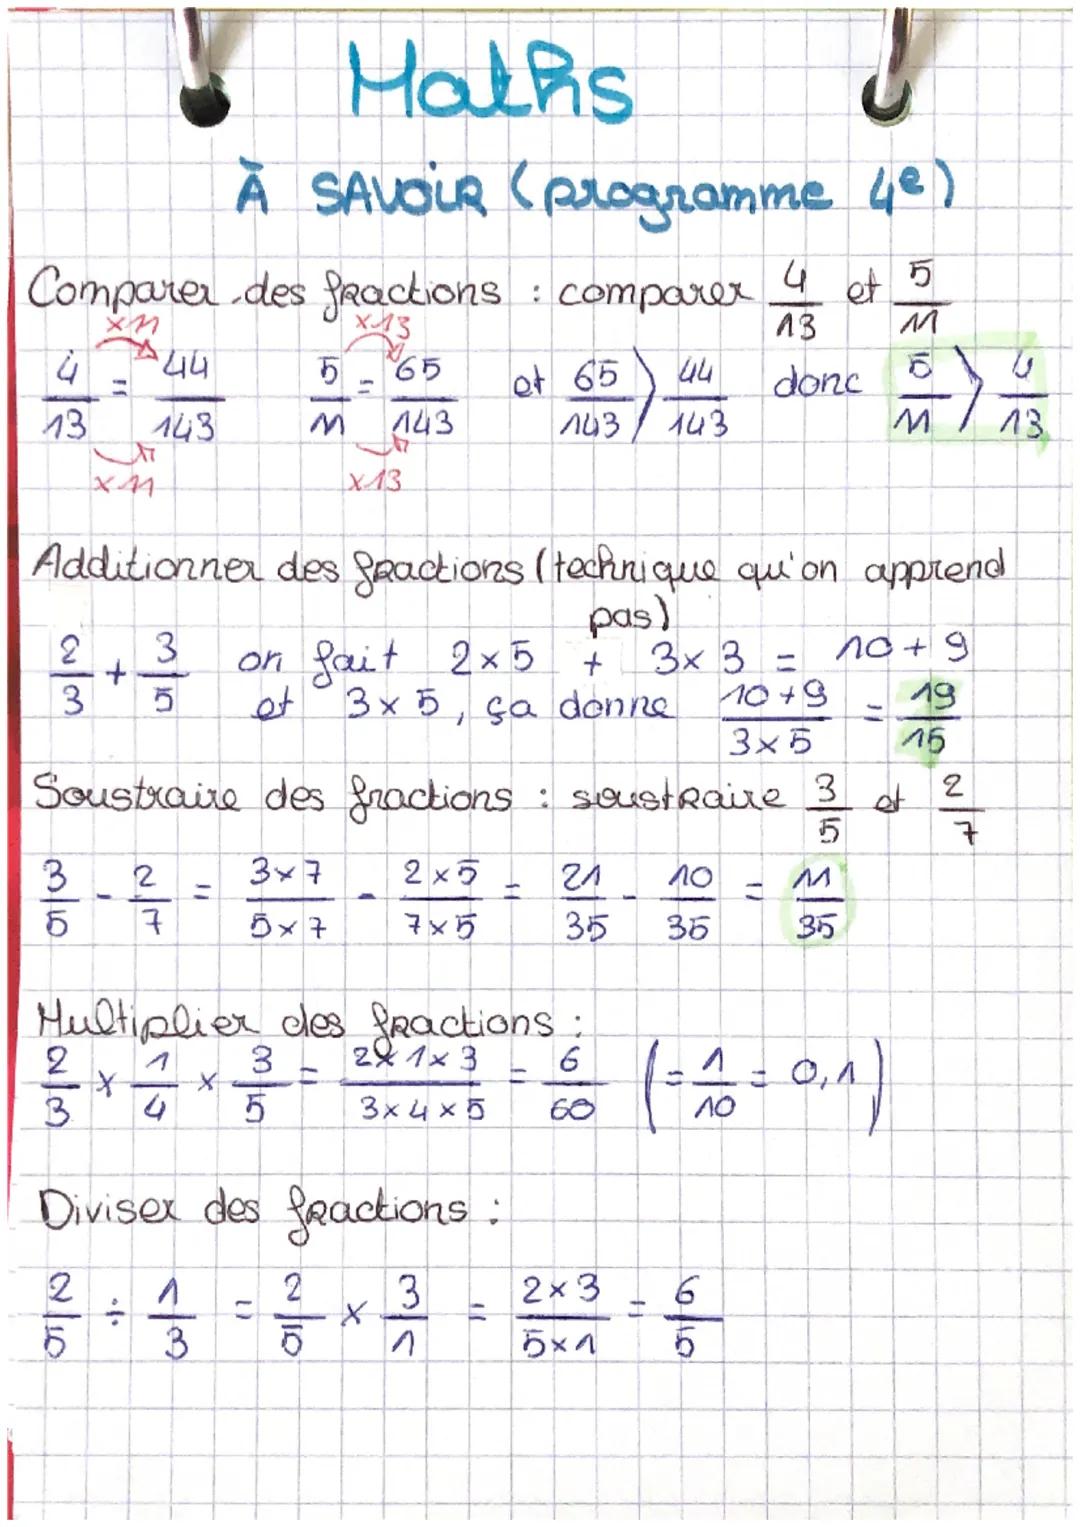 Maths
À SAVOIR (programme 4e)
Comparer des fractions : comparer 4/13 et 5/11
x11 x13
4/13 = 44/143 5/11 = 65/143 et 65/143 > 44/143 donc 5/11 > 4/13
x11 x13
Additionner des fractions (technique qu'on apprend
pas)
2/3 + 3/5 on fait 2x5 + 3x3 = 10+9
et 3x5, ça donne (10+9)/(3x5) = 19/15
Soustraire des fractions : soustraire 3/5 et 2/7
3/5 - 2/7 = (3x7)/(5x7) - (2x5)/(7x5) = 21/35 - 10/35 = 11/35
Multiplier des fractions :
2/3 x 1/4 x 3/5 = (2x1x3)/(3x4x5) = 6/60 (= 1/10 = 0,1)
Diviser des fractions :
2/5 ÷ 1/3 = 2/5 x 3/1 = (2x3)/(5x1) = 6/5